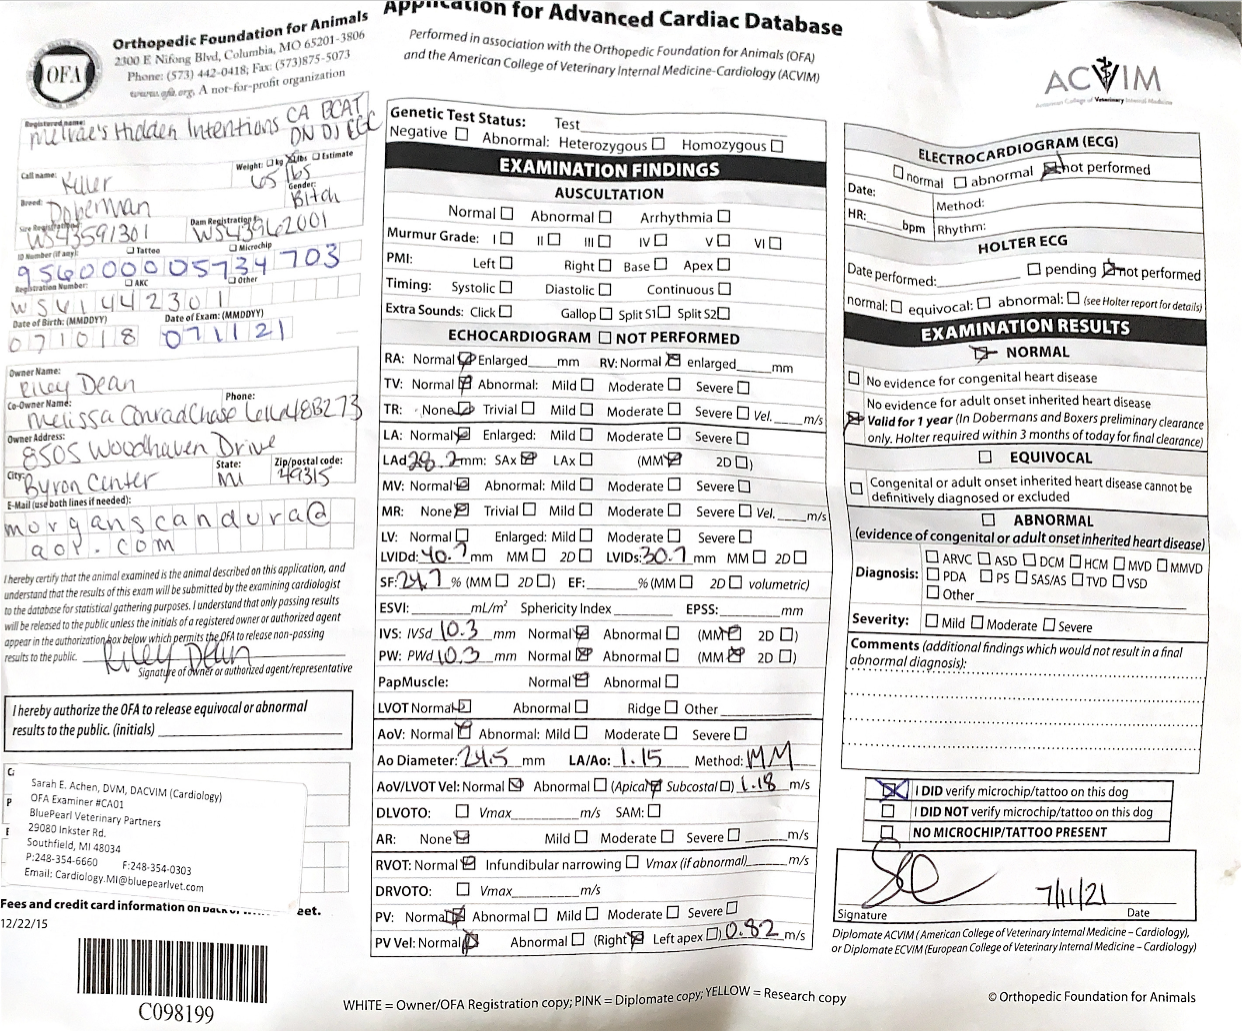 Application for Advanced Cardiac Database
Performed in association with the Orthopedic Foundation for Animals (OFA)
and the American College of Veterinary Internal Medicine-Cardiology (ACVIM)
OFA
Orthopedic Foundation for Animals
2300 E Nifong Blvd, Columbia, MO 65201-3806
Phone: (573) 442-0418; Fax: (573)875-5073
www.offa.org, A not-for-profit organization
ACVIM
American College of Veterinary Internal Medicine
Registered name:
Hidden Intentions CA BCAT
DN DJ
Call name: Killer
Weight: kg lbs Estimate
65 lbs
Breed: Doberman
Gender: Bitch
Sire Registration: WS43591301
Dam Registration: WS43962001
ID Number (if any): Tattoo Microchip
956000005734703
Registration Number: AKC Other
WS41442301
Date of Birth: (MMDDYY) Date of Exam: (MMDDYY)
071018 071121
Owner Name:
Riley Dean
Co-Owner Name: Phone:
Melissa Conrad Chase
Owner Address:
8505 Woodhaven Drive
City: State: Zip/postal code:
Byron Center MI 49315
E-Mail (use both lines if needed):
morganscandura@
aol.com
I hereby certify that the animal examined is the animal described on this application, and
understand that the results of this exam will be submitted by the examining cardiologist
to the database for statistical gathering purposes. I understand that only passing results
will be released to the public unless the initials of a registered owner or authorized agent
appear in the authorization box below which permits the OFA to release non-passing
results to the public. Riley Dean
Signature of owner or authorized agent/representative
I hereby authorize the OFA to release equivocal or abnormal
results to the public. (initials)
Sarah E. Achen, DVM, DACVIM (Cardiology)
OFA Examiner #CA01
BluePearl Veterinary Partners
29080 Inkster Rd.
Southfield, MI 48034
P:248-354-6660 F:248-354-0303
Email: Cardiology.MI@bluepearlvet.com
Fees and credit card information on
12/22/15
C098199
Genetic Test Status: Test
Negative Abnormal: Heterozygous Homozygous
EXAMINATION FINDINGS
AUSCULTATION
Normal Abnormal Arrhythmia
Murmur Grade: I II III IV V VI
PMI: Left Right Base Apex
Timing: Systolic Diastolic Continuous
Extra Sounds: Click Gallop Split S1 Split S2
ECHOCARDIOGRAM NOT PERFORMED
RA: Normal Enlarged mm RV: Normal enlarged mm
TV: Normal Abnormal: Mild Moderate Severe
TR: None Trivial Mild Moderate Severe Vel. m/s
LA: Normal Enlarged: Mild Moderate Severe
LAd 28.2 mm: SAx LAx (MM 2D)
MV: Normal Abnormal: Mild Moderate Severe
MR: None Trivial Mild Moderate Severe Vel. m/s
LV: Normal Enlarged: Mild Moderate Severe
LVIDd: 40.7 mm MM 2D LVIDs: 30.7 mm MM 2D
SF: 24.7 % (MM 2D) EF: % (MM 2D volumetric)
ESVI: mL/m² Sphericity Index EPSS: mm
IVS: IVSd 10.3 mm Normal Abnormal (MM 2D)
PW: PWd 10.3 mm Normal Abnormal (MM 2D)
PapMuscle: Normal Abnormal
LVOT Normal Abnormal Ridge Other
AoV: Normal Abnormal: Mild Moderate Severe
Ao Diameter: 24.5 mm LA/Ao: 1.15 Method: MM
AoV/LVOT Vel: Normal Abnormal (Apical Subcostal) 1.18 m/s
DLVOTO: Vmax m/s SAM:
AR: None Mild Moderate Severe m/s
RVOT: Normal Infundibular narrowing Vmax (if abnormal) m/s
DRVOTO: Vmax m/s
PV: Normal Abnormal Mild Moderate Severe
PV Vel: Normal Abnormal (Right Left apex) 0.82 m/s
ELECTROCARDIOGRAM (ECG)
normal abnormal not performed
Date: Method:
HR: bpm Rhythm:
HOLTER ECG
Date performed: pending not performed
normal: equivocal: abnormal: (see Holter report for details)
EXAMINATION RESULTS
NORMAL
No evidence for congenital heart disease
No evidence for adult onset inherited heart disease
Valid for 1 year (In Dobermans and Boxers preliminary clearance
only. Holter required within 3 months of today for final clearance)
EQUIVOCAL
Congenital or adult onset inherited heart disease cannot be
definitively diagnosed or excluded
ABNORMAL
(evidence of congenital or adult onset inherited heart disease)
Diagnosis: ARVC ASD DCM HCM MVD MMVD
PDA PS SAS/AS TVD VSD
Other
Severity: Mild Moderate Severe
Comments (additional findings which would not result in a final
abnormal diagnosis):
I DID verify microchip/tattoo on this dog
I DID NOT verify microchip/tattoo on this dog
NO MICROCHIP/TATTOO PRESENT
7/11/21
Signature Date
Diplomate ACVIM (American College of Veterinary Internal Medicine – Cardiology),
or Diplomate ECVIM (European College of Veterinary Internal Medicine – Cardiology)
WHITE = Owner/OFA Registration copy; PINK = Diplomate copy; YELLOW = Research copy
© Orthopedic Foundation for Animals